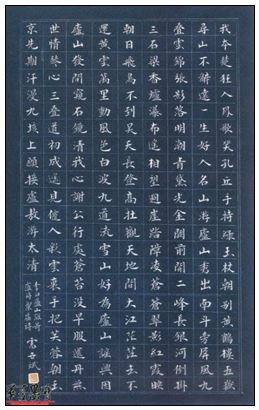 我本楚狂人鳳歌笑孔丘手持綠玉杖朝別黃鶴樓五嶽
尋山不辭遠一生好入名山遊廬山秀出南斗旁屏風九
疊雲錦張影落明湖青黛光金闕前開二峰長銀河倒掛
三石梁香爐瀑布遙相望迴崖沓障凌蒼蒼翠影紅霞映
朝日飛鳥不到吳天長登高壯觀天地間大江茫茫去不
還黃雲萬里動風色白波九道流雪山好為廬山謠興因
廬山發閒窺石鏡清我心謝公行處蒼苔沒早服還丹無
世情琴心三疊道初成遙見仙人彩雲裏手把芙蓉朝玉
京先期汗漫九垓上願接盧敖遊太清
李白廬山謠寄
盧侍御虛舟